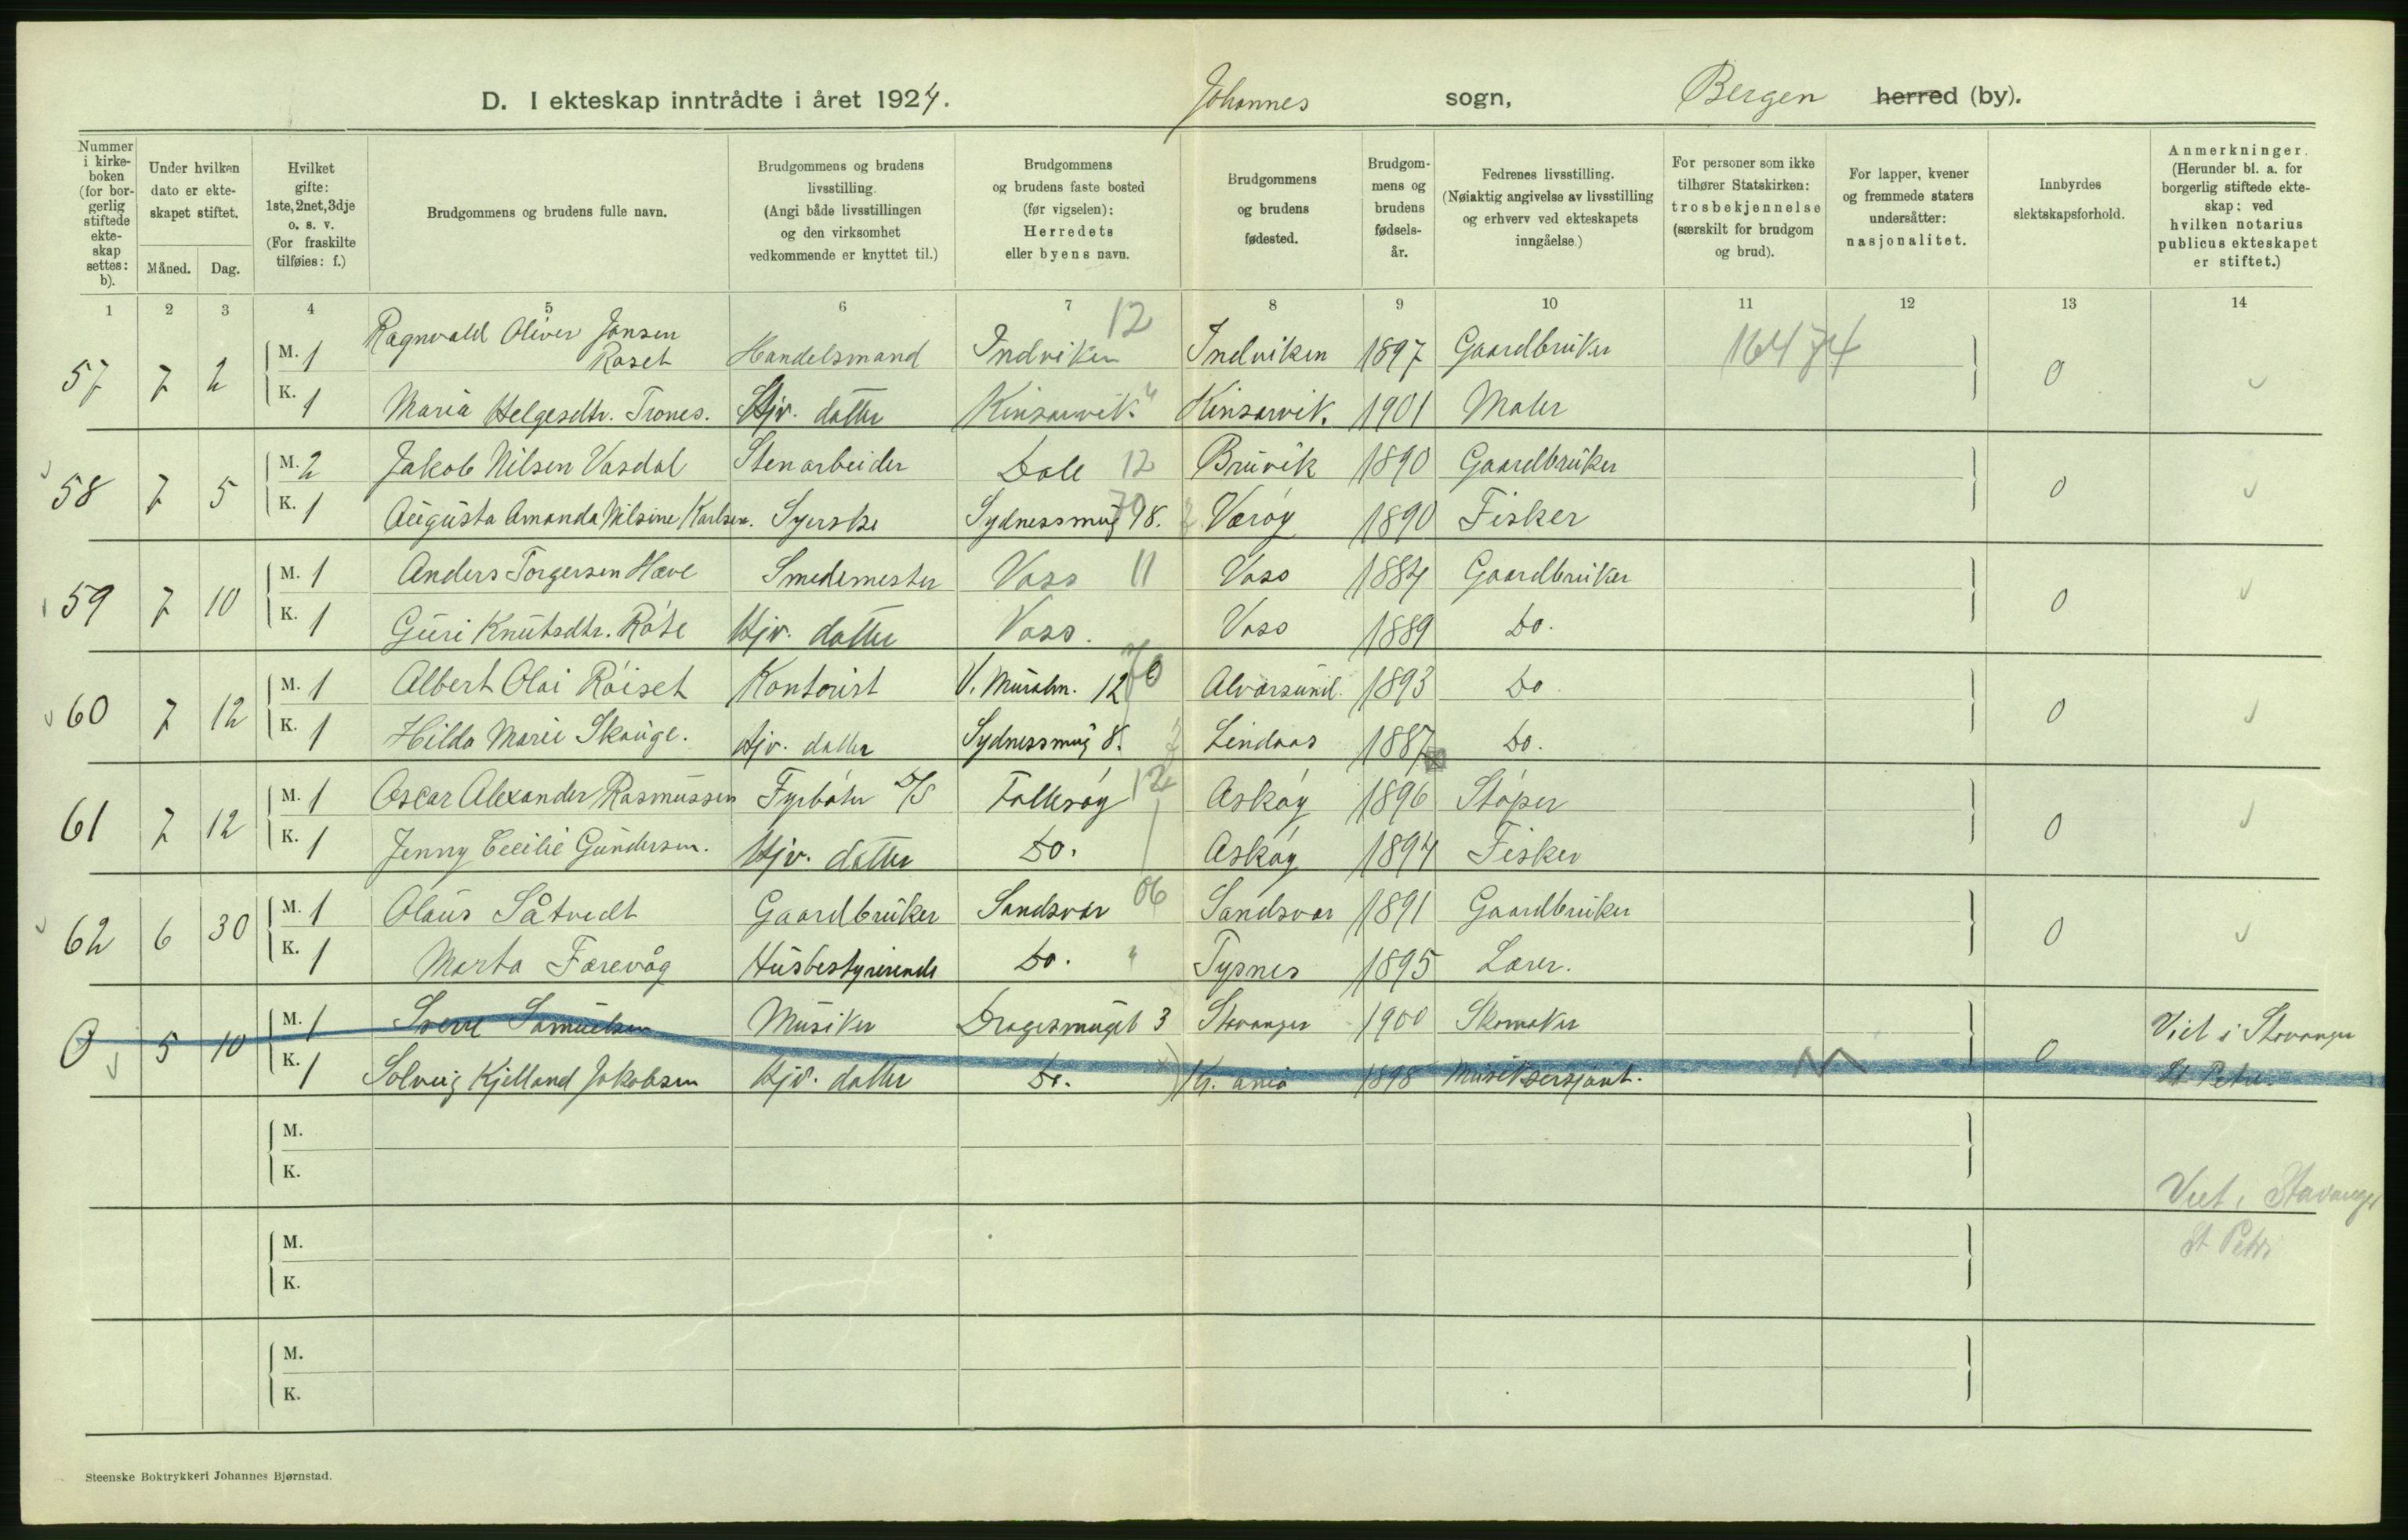 D. I ekteskap inntrådte i året 1924. Johannes sogn, Bergen herred (by).
Nummer i kirkeboken (for borgerlig stiftede ekteskap settes: b).
Under hvilken dato er ekteskapet stiftet.
Måned. Dag.
Hvilket gifte: 1ste, 2net, 3dje o. s. v. (For fraskilte tilføies: f.)
Brudgommens og brudens fulle navn.
Brudgommens og brudens livsstilling. (Angi både livsstillingen og den virksomhet vedkommende er knyttet til.)
Brudgommens og brudens faste bosted (før vigselen): Herredets eller byens navn.
Brudgommens og brudens fødested.
Brudgommens og brudens fødselsår.
Fedrenes livsstilling. (Nøiaktig angivelse av livsstilling og erhverv ved ekteskapets inngåelse.)
For personer som ikke tilhører Statskirken: trosbekjennelse (særskilt for brudgom og brud).
For lapper, kvener og fremmede staters undersåtter: nasjonalitet.
Innbyrdes slektskapsforhold.
Anmerkninger. (Herunder bl. a. for borgerlig stiftede ekteskap: ved hvilken notarius publicus ekteskapet er stiftet.)
1 2 3 4 5 6 7 8 9 10 11 12 13 14
57 7 2 M. 1 Ragnvald Oliver Jansen Roset Handelsmand Indviken 12 Indviken 1897 Gaardbruker 16474 0
K. 1 Maria Helgesdtr. Trones. Hjv. datter Kinsarvik " Kinsarvik. 1901 Maler
58 7 5 M. 2 Jakob Nilsen Vasdal Stenarbeider Dale 12 Bruvik 1890 Gaardbruker 0
K. 1 Augusta Amanda Nilsine Karlsen. Syerske Sydnessmug 18. Værøy 1890 Fisker
59 7 10 M. 1 Anders Torgersen Hæve Smedemester Voss 11 Voss 1884 Gaardbruker 0
K. 1 Guri Knutsdtr. Røte Hjv. datter Voss. Voss 1889 Do.
60 7 12 M. 1 Albert Olai Røiset Kontorist V. Muralm. 12 Alversund. 1893 Do 0
K. 1 Hilda Marie Skauge. Hjv. datter Sydnessmug 8. Lindaas 1887 Do.
61 7 12 M. 1 Oscar Alexander Rasmussen Fyrbøter D/S Follesøy 12 Askøy 1896 Støper 0
K. 1 Jenny Cecilie Gundersen. Hjv. datter Do. Askøy 1894 Fisker
62 6 30 M. 1 Olaus Såtvedt Gaardbruker Sandsvær 06 Sandsvær 1891 Gaardbruker 0
K. 1 Marta Færevåg Husbestyrerinde Do. " Tysnes 1895 Lærer.
0 5 10 M. 1 Sverre Samuelsen Musiker Dragesmuget 3 Stavanger 1900 Skomaker 0 Viet i Stavanger
K. 1 Solveig Kjelland Jakobsen Hjv. datter Do. Kr. ania 1898 Musiksersjant. St. Petri.
M.
K.
Viet i Stavanger
M.
St Petri
K.
M.
K.
Steenske Boktrykkeri Johannes Bjørnstad.